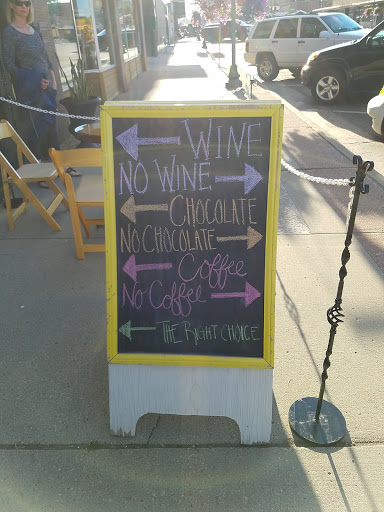 ← WINE
NO WINE →
← CHOCOLATE
NO CHOCOLATE →
← Coffee
No Coffee →
← THE RIGHT CHOICE